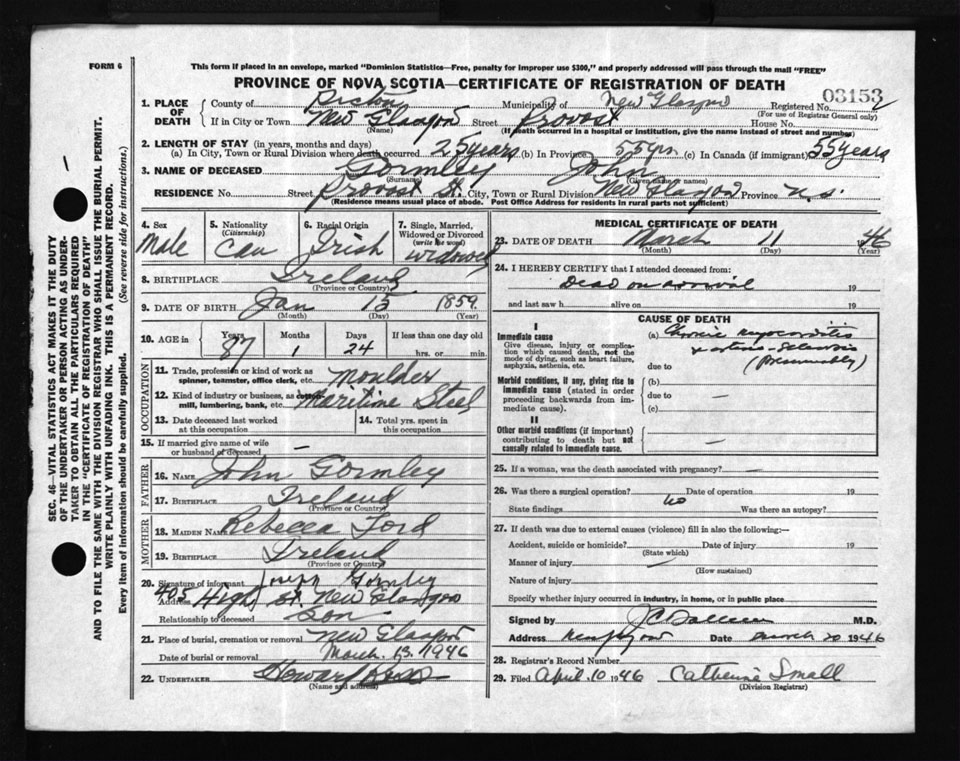 FORM 6
This form if placed in an envelope, marked "Dominion Statistics—Free, penalty for improper use $300," and properly addressed will pass through the mail "FREE"
PROVINCE OF NOVA SCOTIA—CERTIFICATE OF REGISTRATION OF DEATH
03153
1. PLACE OF DEATH
County of Pictou Municipality of New Glasgow Registered No.
(For use of Registrar General only)
If in City or Town New Glasgow Street Provost House No.
(Name) (If death occurred in a hospital or institution, give the name instead of street and number)
2. LENGTH OF STAY (in years, months and days)
(a) In City, Town or Rural Division where death occurred 25 years (b) In Province 55 yrs (c) In Canada (if immigrant) 55 years
3. NAME OF DECEASED Gormley John
(Surname) (Given name or names)
RESIDENCE No. Street Provost St. City, Town or Rural Division New Glasgow Province N.S.
(Residence means usual place of abode. Post Office Address for residents in rural parts not sufficient)
4. Sex Male
5. Nationality (Citizenship) Can
6. Racial Origin Irish
7. Single, Married, Widowed or Divorced (write the word) Widowed
8. BIRTHPLACE Ireland
(Province or Country)
9. DATE OF BIRTH Jan 15 1859
(Month) (Day) (Year)
10. AGE in Years 87 Months 1 Days 24 If less than one day old hrs. or min.
OCCUPATION
11. Trade, profession or kind of work as spinner, teamster, office clerk, etc. Moulder
12. Kind of industry or business, as cotton mill, lumbering, bank, etc. Maritime Steel
13. Date deceased last worked at this occupation
14. Total yrs. spent in this occupation
15. If married give name of wife or husband of deceased —
FATHER
16. NAME John Gormley
17. BIRTHPLACE Ireland
(Province or Country)
MOTHER
18. MAIDEN NAME Rebecca Ford
19. BIRTHPLACE Ireland
(Province or Country)
20. Signature of informant Joseph Gormley
Address 405 High St. New Glasgow
Relationship to deceased Son
21. Place of burial, cremation or removal New Glasgow
Date of burial or removal March 13, 1946
22. UNDERTAKER Howard
(Name and address)
MEDICAL CERTIFICATE OF DEATH
23. DATE OF DEATH March 11 1946
(Month) (Day) (Year)
24. I HEREBY CERTIFY that I attended deceased from:
Dead on arrival 19
and last saw h alive on 19
CAUSE OF DEATH
I
Immediate cause
Give disease, injury or complication which caused death, not the mode of dying, such as heart failure, asphyxia, asthenia, etc.
(a) Chronic myocarditis
due to arterio-sclerosis
(presumably)
Morbid conditions, if any, giving rise to immediate cause (stated in order proceeding backwards from immediate cause).
(b) —
due to
(c)
II
Other morbid conditions (if important) contributing to death but not causally related to immediate cause. —
25. If a woman, was the death associated with pregnancy? —
26. Was there a surgical operation? Date of operation 19
State findings no Was there an autopsy?
27. If death was due to external causes (violence) fill in also the following:—
Accident, suicide or homicide? Date of injury 19
(State which)
Manner of injury —
(How sustained)
Nature of injury
Specify whether injury occurred in industry, in home, or in public place
Signed by M.D.
Address Date March 20 1946
28. Registrar's Record Number
29. Filed April 10 1946 Catherine Small
(Division Registrar)
SEC. 46—VITAL STATISTICS ACT MAKES IT THE DUTY
OF THE UNDERTAKER OR PERSON ACTING AS UNDER-
TAKER TO OBTAIN ALL THE PARTICULARS REQUIRED
IN THE "CERTIFICATE OF REGISTRATION OF DEATH"
AND TO FILE THE SAME WITH THE DIVISION REGISTRAR WHO SHALL ISSUE THE BURIAL PERMIT.
WRITE PLAINLY WITH UNFADING INK. THIS IS A PERMANENT RECORD.
Every item of information should be carefully supplied. (See reverse side for instructions.)